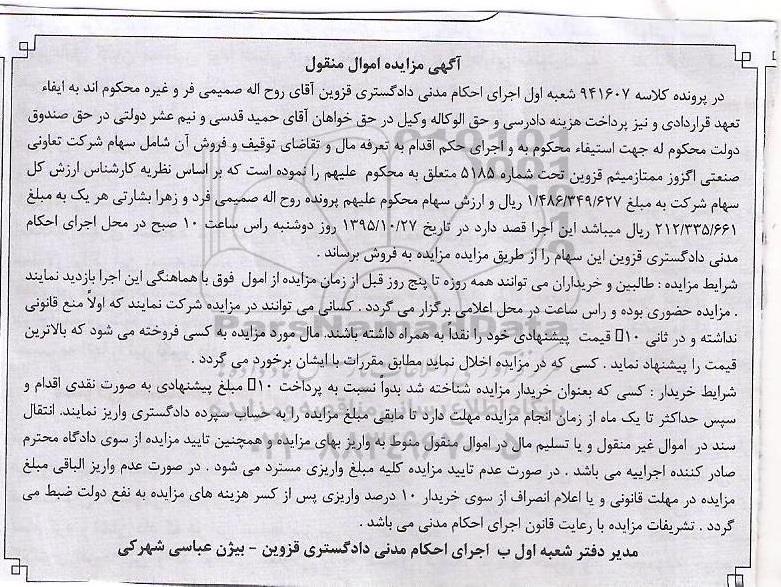 آگهی مزایده اموال منقول
در پرونده کلاسه ۹۴۱۶۰۷ شعبه اول اجرای احکام مدنی دادگستری قزوین آقای روح اله صمیمی فر و غیره محکوم اند به ایفاء
تعهد قراردادی و نیز پرداخت هزینه دادرسی و حق الوکاله وکیل در حق خواهان آقای حمید قدسی و نیم عشر دولتی در حق صندوق
دولت محکوم له جهت استیفاء محکوم به و اجرای حکم اقدام به تعرفه مال و تقاضای توقیف و فروش آن شامل سهام شرکت تعاونی
صنعتی اگزوز ممتازمیثم قزوین تحت شماره ۵۱۸۵ متعلق به محکوم علیهم را نموده است که بر اساس نظریه کارشناس ارزش کل
سهام شرکت به مبلغ ۱/۴۸۶/۳۴۹/۶۲۷ ریال و ارزش سهام محکوم علیهم پرونده روح اله صمیمی فرد و زهرا بشارتی هر یک به مبلغ
۲۱۲/۳۳۵/۶۶۱ ریال میباشد این اجرا قصد دارد در تاریخ ۱۳۹۵/۱۰/۲۷ روز دوشنبه راس ساعت ۱۰ صبح در محل اجرای احکام
مدنی دادگستری قزوین این سهام را از طریق مزایده مزایده به فروش برساند .
شرایط مزایده : طالبین و خریداران می توانند همه روزه تا پنج روز قبل از زمان مزایده از امول فوق با هماهنگی این اجرا بازدید نمایند
. مزایده حضوری بوده و راس ساعت در محل اعلامی برگزار می گردد . کسانی می توانند در مزایده شرکت نمایند که اولاً منع قانونی
نداشته و در ثانی ۱۰ قیمت پیشنهادی خود را نقدا به همراه داشته باشند. مال مورد مزایده به کسی فروخته می شود که بالاترین
قیمت را پیشنهاد نماید . کسی که در مزایده اخلال نماید مطابق مقررات با ایشان برخورد می گردد .
شرایط خریدار : کسی که بعنوان خریدار مزایده شناخته شد بدواً نسبت به پرداخت ۱۰ مبلغ پیشنهادی به صورت نقدی اقدام و
سپس حداکثر تا یک ماه از زمان انجام مزایده مهلت دارد تا مابقی مبلغ مزایده را به حساب سپرده دادگستری واریز نمایند. انتقال
سند در اموال غیر منقول و یا تسلیم مال در اموال منقول منوط به واریز بهای مزایده و همچنین تایید مزایده از سوی دادگاه محترم
صادر کننده اجراییه می باشد . در صورت عدم تایید مزایده کلیه مبلغ واریزی مسترد می شود . در صورت عدم واریز الباقی مبلغ
مزایده در مهلت قانونی و یا اعلام انصراف از سوی خریدار ۱۰ درصد واریزی پس از کسر هزینه های مزایده به نفع دولت ضبط می
گردد . تشریفات مزایده با رعایت قانون اجرای احکام مدنی می باشد .
مدیر دفتر شعبه اول ب اجرای احکام مدنی دادگستری قزوین - بیژن عباسی شهرکی
ParsNamadData